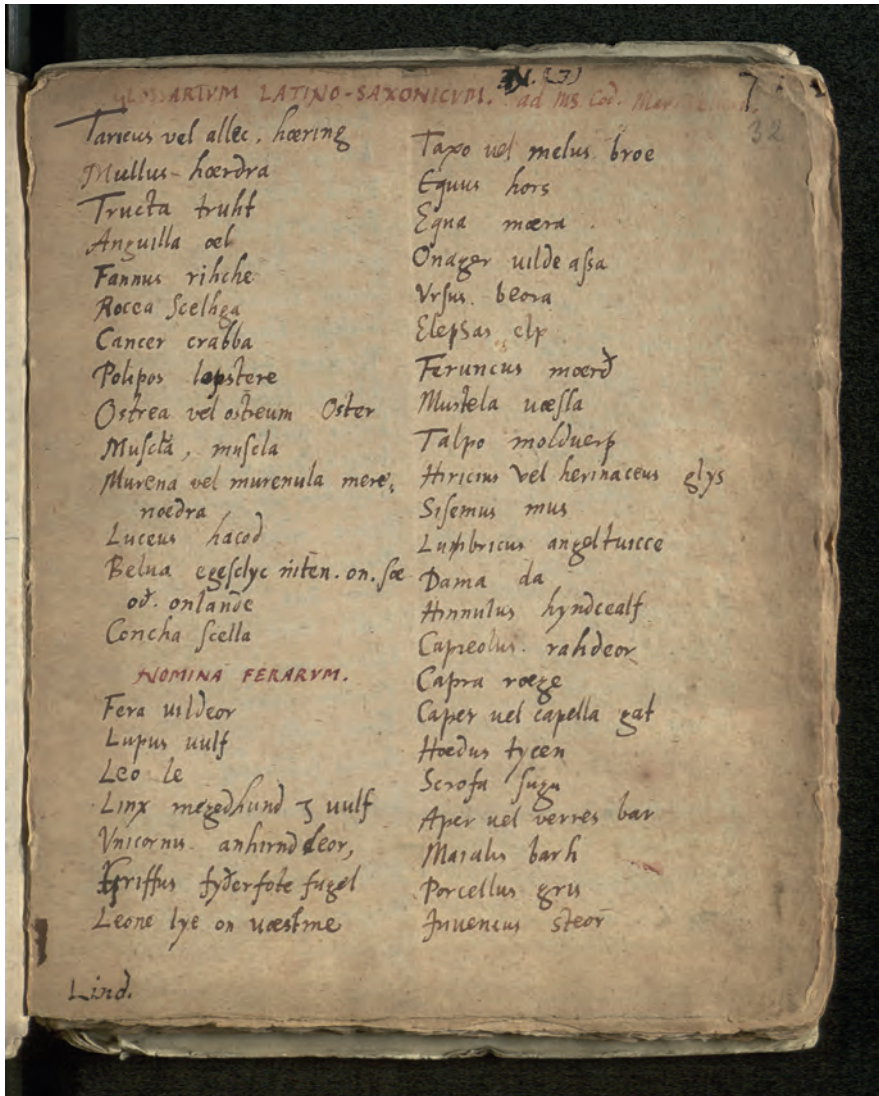 N. (3)
7
GLOSSARIVM LATINO-SAXONICVM. ad MS. Cod.
32
Taricus vel allec, hæring
Mullus - hæardra
Tructa truht
Anguilla œl
Fannus rihche
Rocea scelhga
Cancer crabba
Polipos lopystere
Ostrea vel ostreum Oster
Muscla, muscla
Murena vel murenula mere,
nœdra
Luceus hacod
Belua egeslyc niten. on. sœ
oð. onlande
Concha scella
NOMINA FERARVM.
Fera uildeor
Lupus uulf
Leo le
Linx megedhund ⁊ uulf
Vnicornus anhirnd deor,
Griffus fyðerfote fugel
Leone lye on uæstme
Lind.
Taxo uel melus broc
Equus hors
Equa mæra
Onager uilde assa
Vrsus. beora
Elepsas elp
Feruncus mœrð
Mustela uæsla
Talpo molduerp
Hiricius vel herinaceus glys
Sisemus mus
Lumbricus angeltuicce
Dama da
Hinnulus hyndcealf
Capreolus. rahdeor
Capra rœge
Caper uel capella gat
Hœdus tycen
Scrofa sugu
Aper uel verres bar
Maialis barh
Porcellus gris
Iuuencus steor